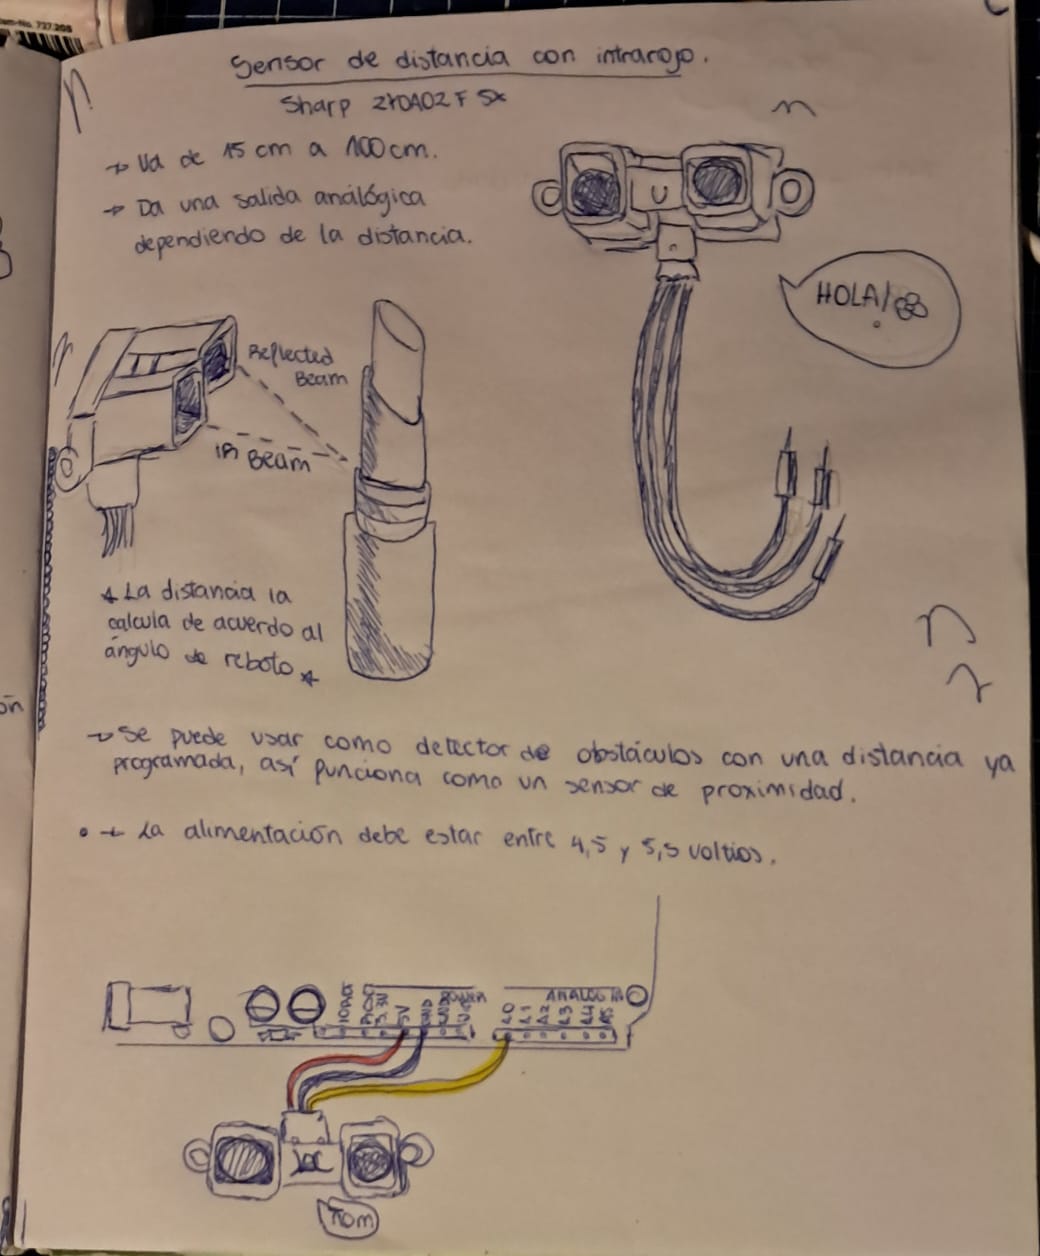 Sensor de distancia con infrarojo.
Sharp 2Y0A02 F 5X
→ Va de 15 cm a 100 cm.
→ Da una salida análógica
dependiendo de la distancia.
HOLA/
Reflected
Beam
IR Beam
* La distancia la
calcula de acuerdo al
ángulo de reboto *
→ Se puede usar como detector de obstáculos con una distancia ya
programada, así funciona como un sensor de proximidad.
• → La alimentación debe estar entre 4,5 y 5,5 voltios.
POWER ANALOG IN
3.3V 5V GND GND A0 A1 A2 A3 A4 A5
Tom